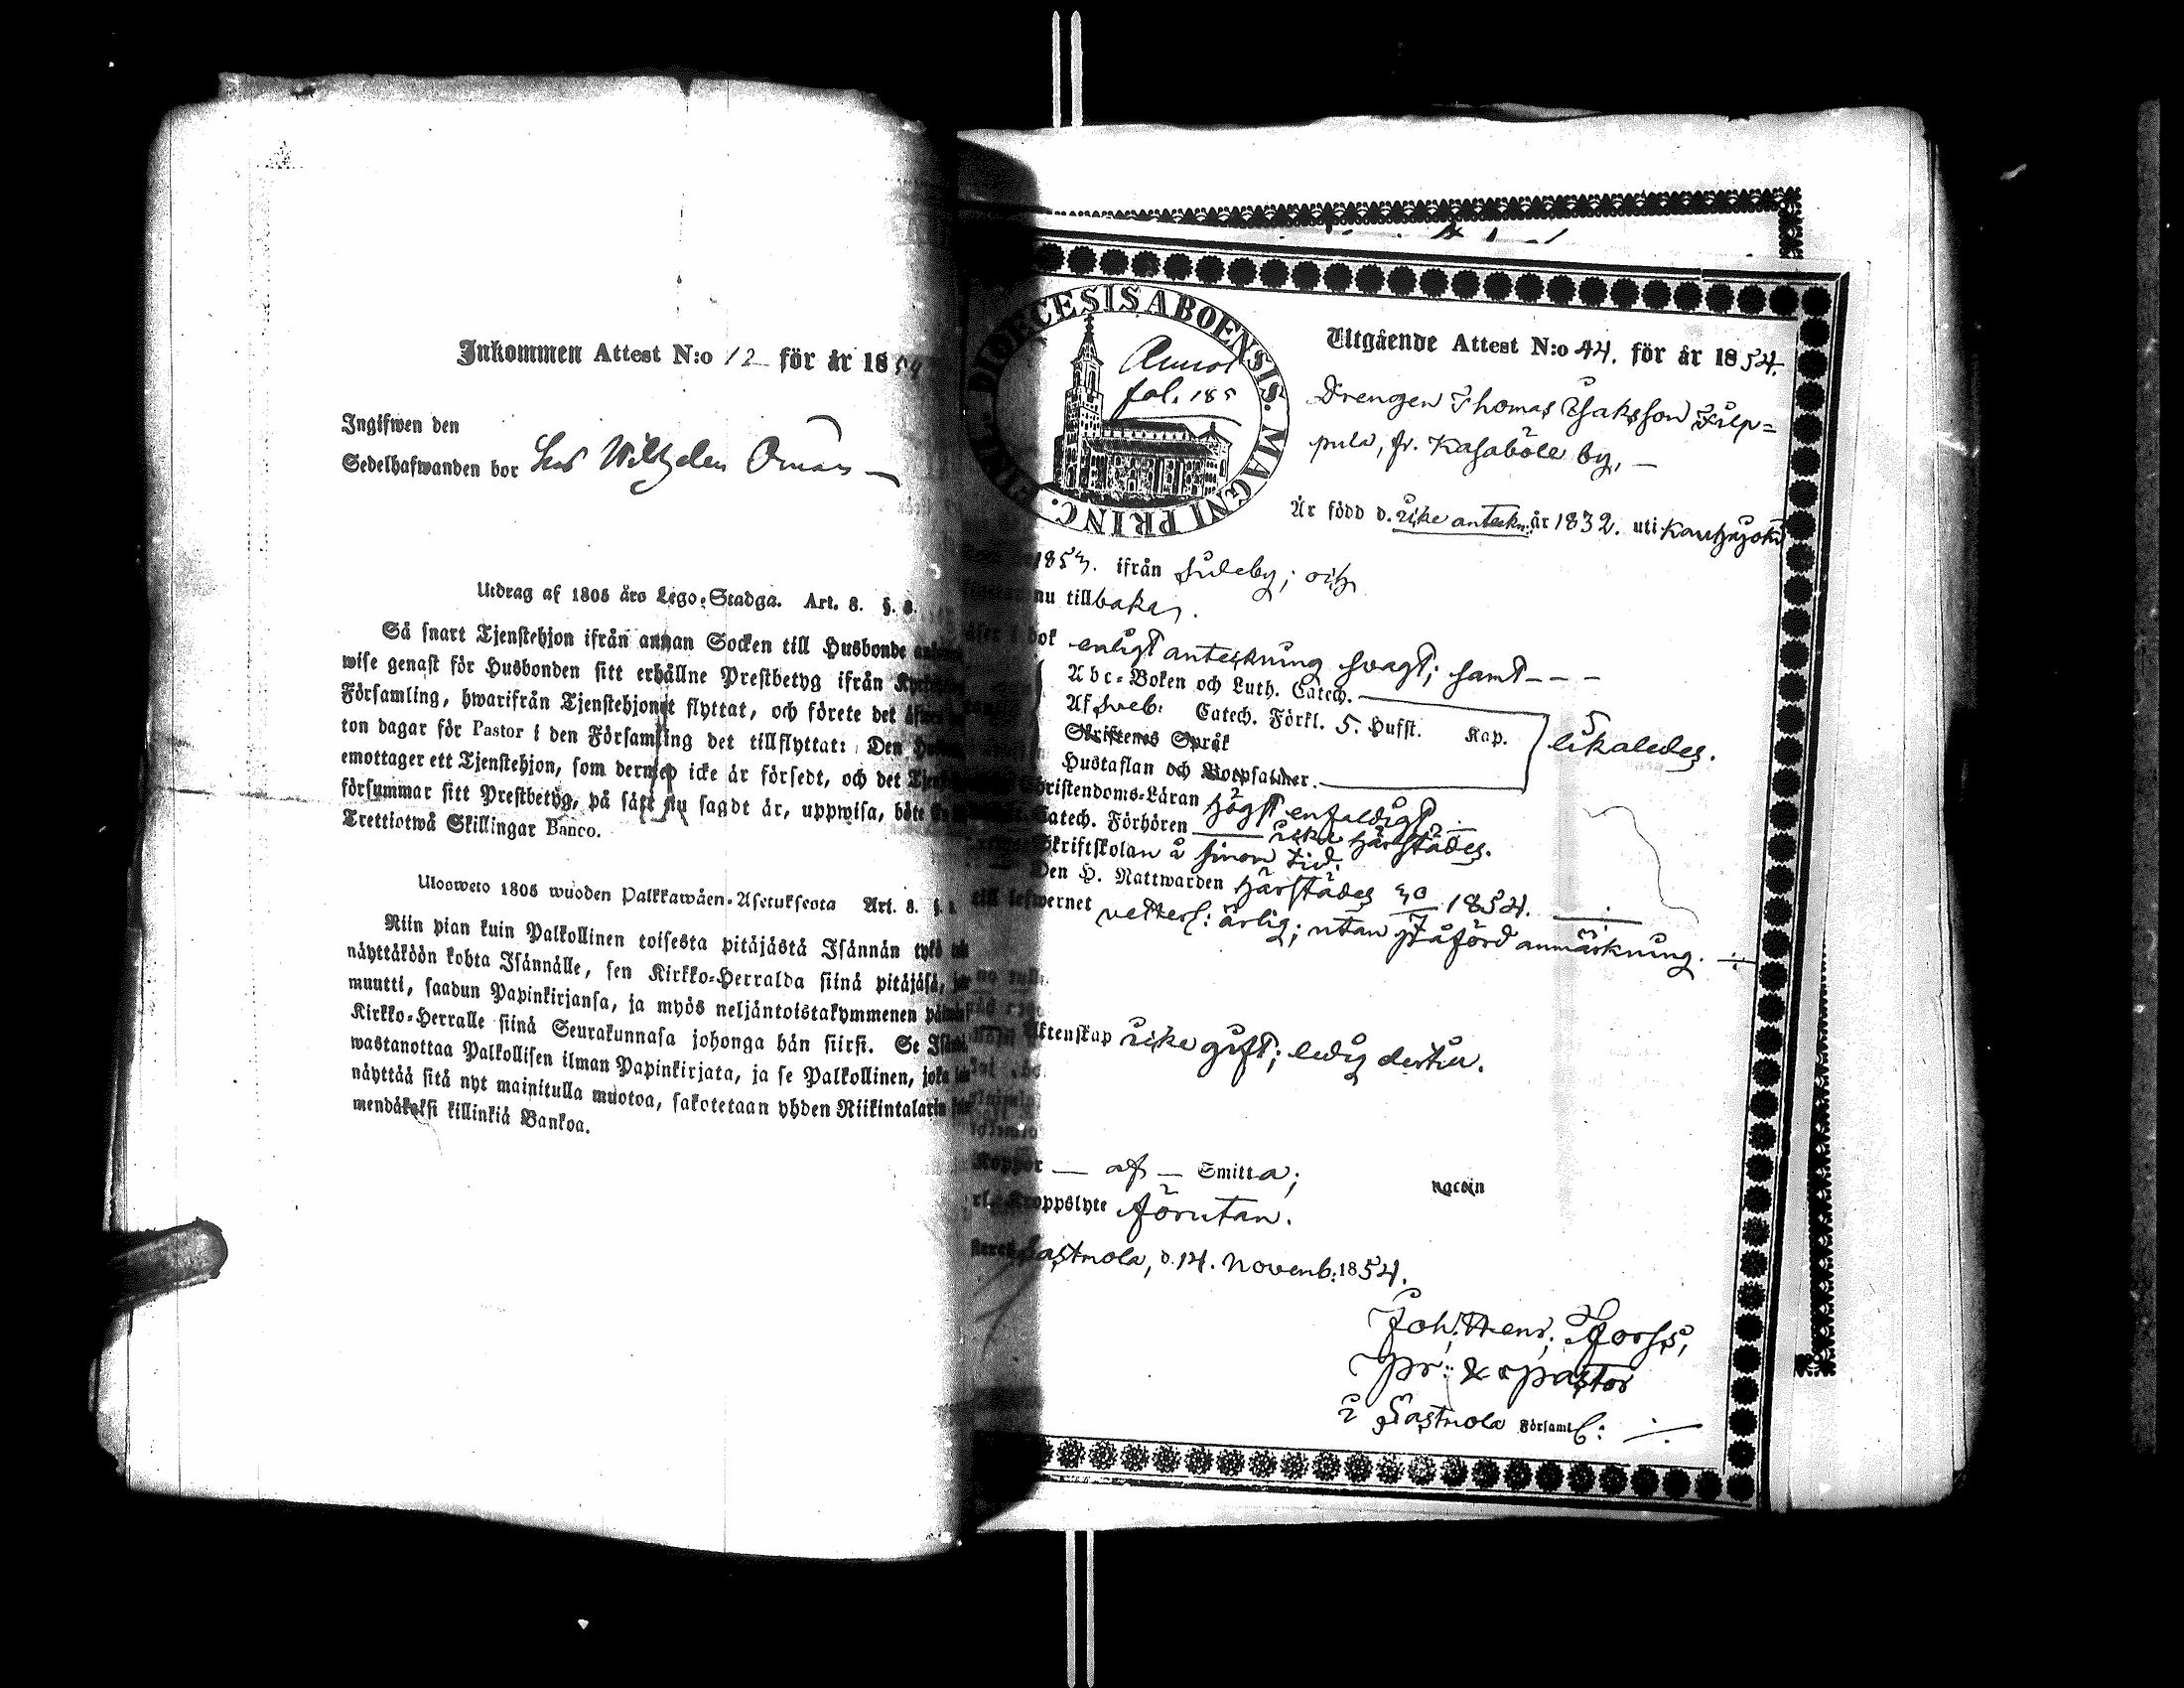 Inkommen Attest N:o 12 för år 1854
Ingifwen den
Sedelhafwanden bor hos Wilhelm Öman
Utdrag af 1805 års Lego-Stadga. Art. 8. §. 8.
Så snart Tjenstehjon ifrån annan Socken till Husbonde
wise genast för Husbonden sitt erhållne Prestbetyg ifrån
Församling, hwarifrån Tjenstehjonet flyttat, och förete det
ton dagar för Pastor i den Församling det tillflyttat: Den
emottager ett Tjenstehjon, som dermed icke är försedt, och det
försummar sitt Prestbetyg, på sätt nu sagdt är, uppwisa, böte
Trettiotwå Skillingar Banco.
Ulosweto 1805 wuoden Palkkawäen-Asetuksesta Art. 8. §.
Niin pian kuin Palkollinen toisesta pitäjästä Isännän tykö
näyttäköön kohta Isännälle, sen Kirkko-Herralda siinä pitäjäsä,
muutti, saadun Papinkirjansa, ja myös neljäntoistakymmenen
Kirkko-Herralle siinä Seurakunnasa johonga hän siirsi. Se
wastanottaa Palkollisen ilman Papinkirjata, ja se Palkollinen, joka
näyttää sitä nyt mainitulla muotoa, sakotetaan yhden Riikintalarin
mendäkaksi killinkiä Bankoa.
DIOECESIS ABOENSIS. MAGNI PRINC.
Annot
fol. 185
Utgående Attest N:o 44. för år 1854.
Drengen Thomas Isaksson Filp=
pula, fr. Kasaböle by,
Är född d. icke anteckn: år 1832. uti Kauhajoki
1853. ifrån Sideby; och
nu tillbaka.
bok enligt anteckning svagt; samt
Abc-Boken och Luth. Catech.
Af Sveb: Catech. Förkl. 5. Hufst. Kap.
likaledes.
Skriftenes Språk
Hustaflan och Botpsalmer.
Christendoms-Läran högst enfaldigt
Catech. Förhören icke härstädes.
Skriftskolan i sinom tid.
Den H. Nattwarden härstädes 30/7 1854.
till lefwernet vetterl: ärlig; utan påförd anmärkning.
Äktenskap icke gift; ledig dertill.
Koppor — af — Smitta; vaccin
Kroppslyte förutan.
Sastmola, d. 14. Novemb: 1854.
Joh. Henr. Forss,
pr: & Pastor
i Sastmola Församl: